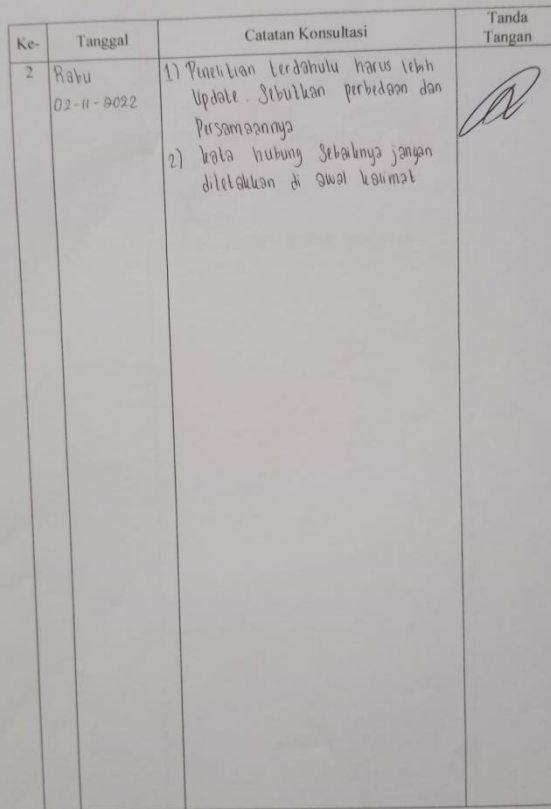 Ke- Tanggal Catatan Konsultasi Tanda
Tangan
2 Rabu 1) Penelitian terdahulu harus lebih
02-11-2022 Update. Sebutkan perbedaan dan
Persamaannya
2) kata hubung Sebaiknya jangan
diletakkan di awal kalimat